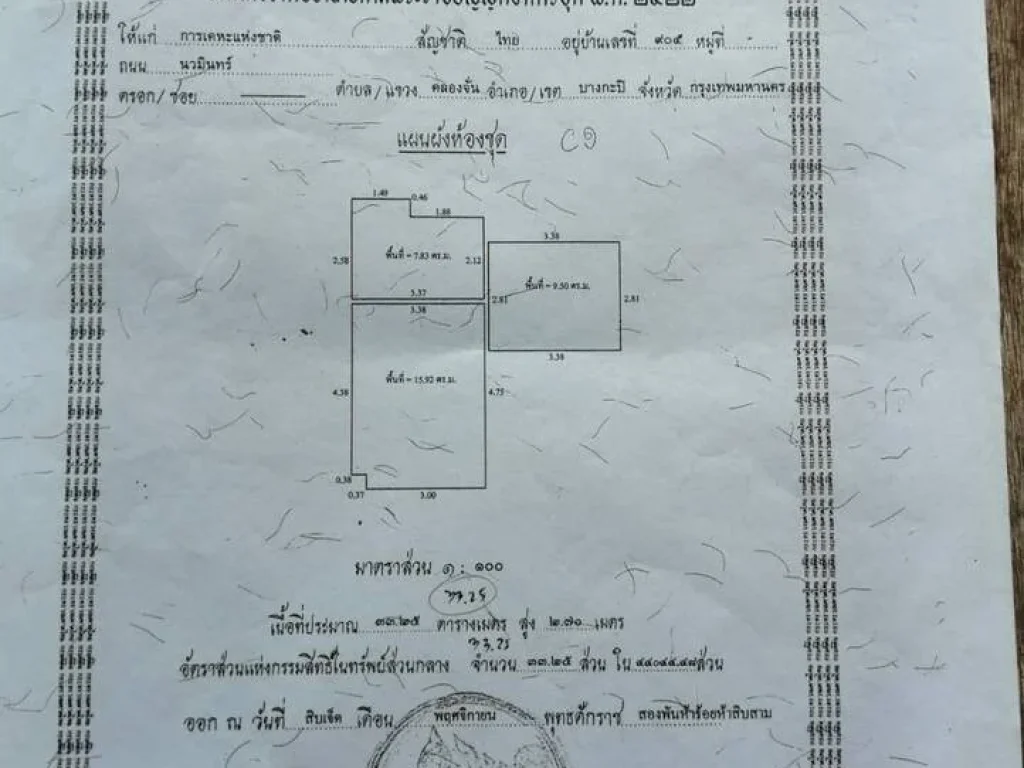 ให้แก่ การเคหะแห่งชาติ สัญชาติ ไทย อยู่บ้านเลขที่ ๙๐๕ หมู่ที่ -
ถนน นวมินทร์
ตรอก/ซอย ตำบล/แขวง คลองจั่น อำเภอ/เขต บางกะปิ จังหวัด กรุงเทพมหานคร
แผนผังห้องชุด
1.49 0.46
1.88
3.38
2.58 พื้นที่ = 7.83 ตร.ม. 2.12
พื้นที่ = 9.50 ตร.ม.
3.37 2.81 2.81
3.38
3.38
4.38 พื้นที่ = 15.92 ตร.ม. 4.75
0.38
0.37 3.00
มาตราส่วน ๑ : ๑๐๐
33.25
เนื้อที่ประมาณ ๓๓.๒๕ ตารางเมตร สูง ๒.๗๐ เมตร
33.25
อัตราส่วนแห่งกรรมสิทธิ์ในทรัพย์ส่วนกลาง จำนวน ๓๓.๒๕ ส่วน ใน ส่วน
ออก ณ วันที่ สิบเจ็ด เดือน พฤศจิกายน พุทธศักราช สองพันห้าร้อยห้าสิบสาม